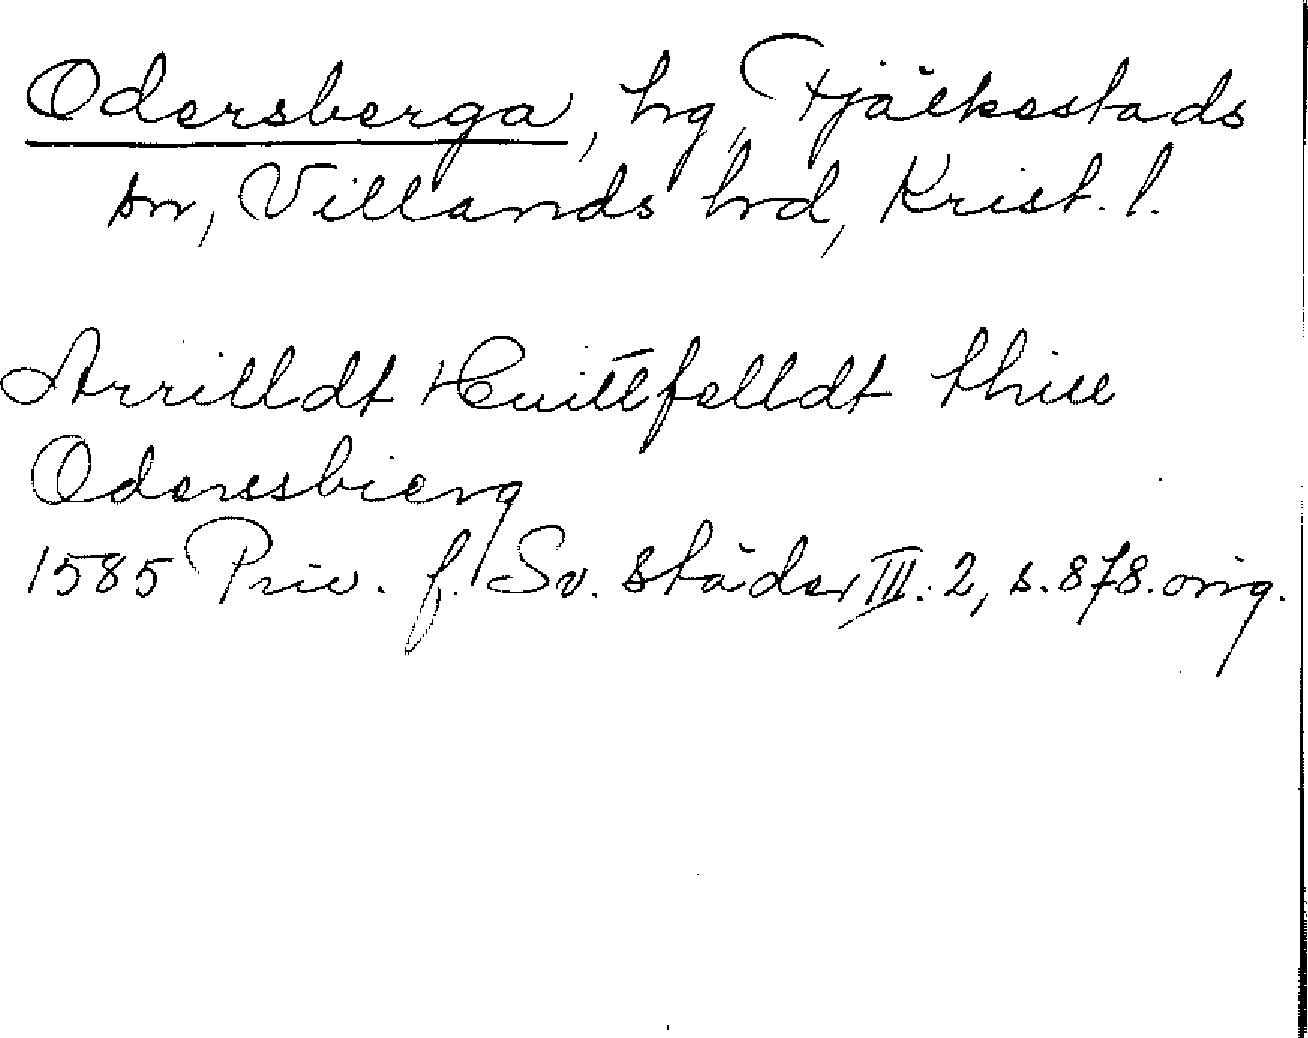 Odersberga, hg, Fjälkestads
sn, Villands hd, Krist. l.
Arrilldt Huittfelldt thill
Oderesbierg
1585 Priv. f. Sv. städer III. 2, s. 878. orig.